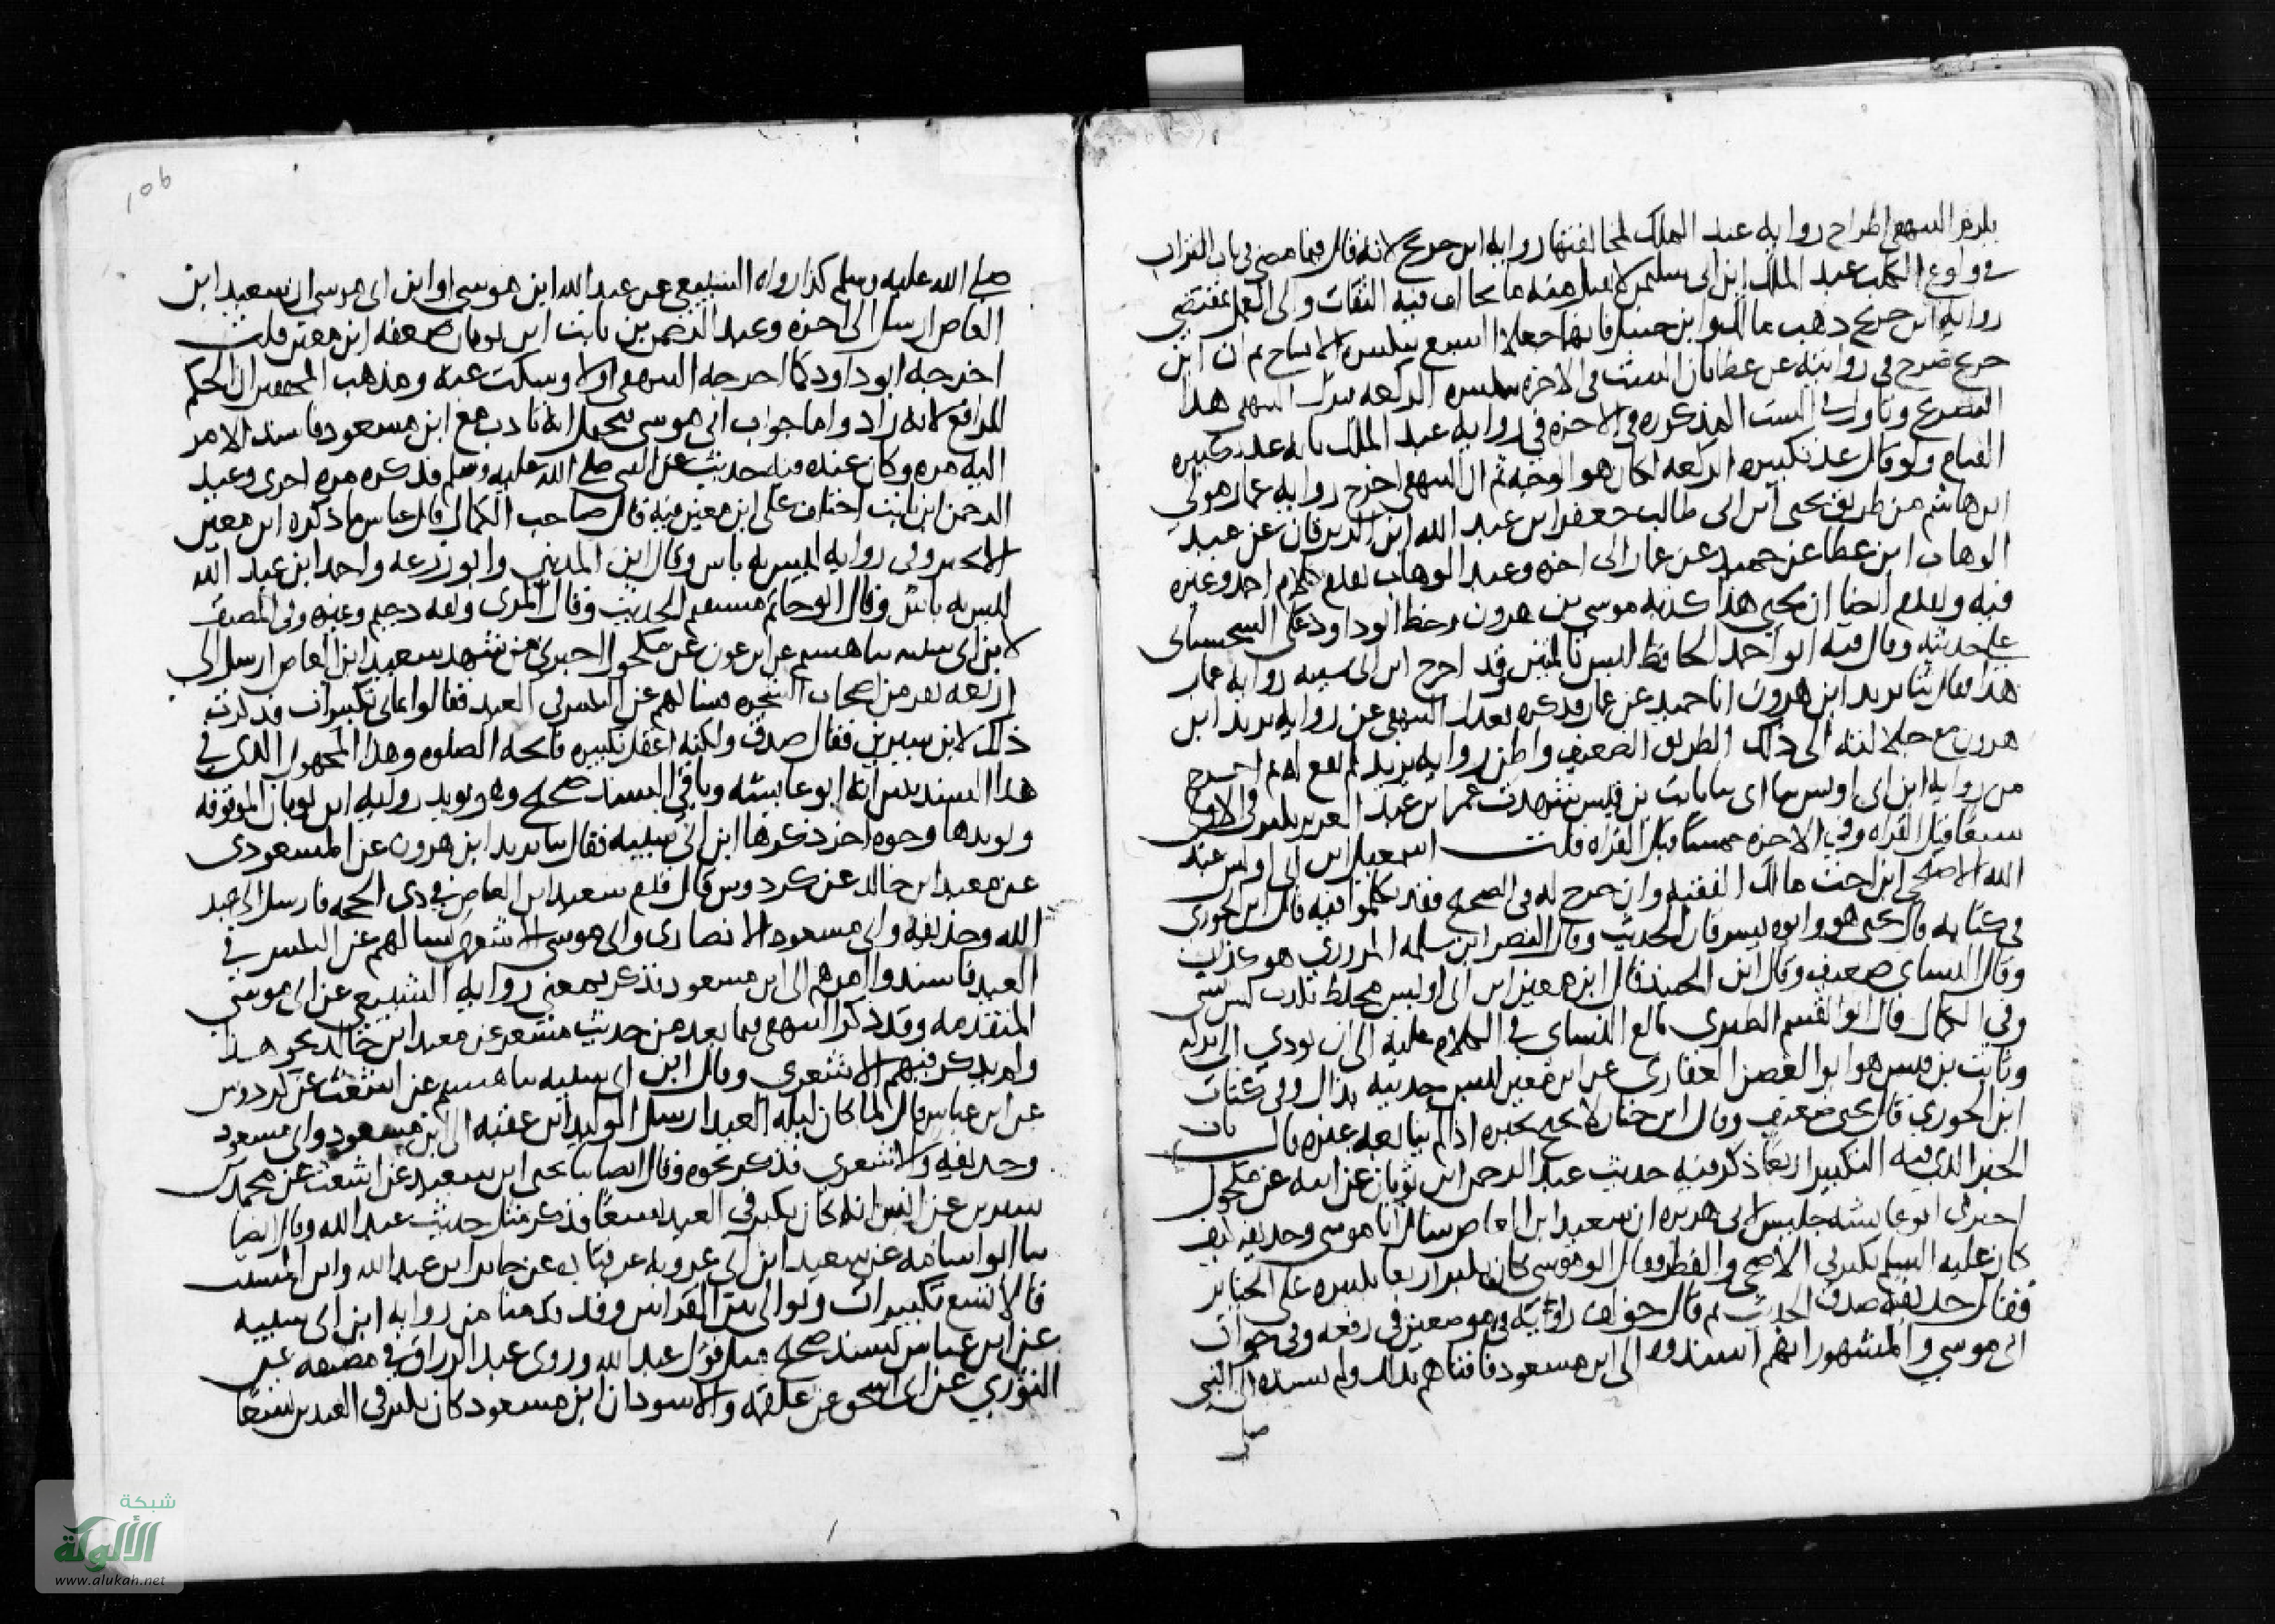 يلزم البيهقى اطراح رواية عبد الملك لمخالفتها رواية ابن جريج لانه قال فيما مضى فى باب التراب
فى ولوغ الكلب عبد الملك ابن ابى سليمن لا يقبل منه ما يخالف فيه الثقات والى العمل بمقتضى
رواية ابن جريج ذهب مالك وابن حنبل فانهما جعلا السبع بتكبيرة الافتتاح ثم ان ابن
جريج صرح فى روايته عن عطا بان الست فى الاخرة بتكبيرة الركعة فترك البيهقى هذا
التصريح وتاول الست المذكورة فى الاخرة فى رواية عبد الملك بانه عد تكبيرة
القيام ولو قال عد تكبيرة الركعة لكان هو الوجه ثم ان البيهقى اخرج رواية عمار مولى
ابن هاشم من طريق يحيى ابن ابى طالب جعفر ابن عبد الله ابن الزبرقان عن عبد
الوهاب ابن عطا عن حميد عن عمار الى اخره وعبد الوهاب تقدم كلام احمد وغيره
فيه وتقدم ايضا ان يحيى هذا كذبه موسى بن هرون وخط ابو داود على السجستانى
على حديثه وقال فيه ابو احمد الحافظ ليس بالمتين وقد اخرج ابن ابى شيبه رواية عمار
هذا فقال ثنا يزيد ابن هرون انا حميد عن عمار فذكره فعدل البيهقى عن رواية يزيد ابن
هرون مع جلالته الى ذلك الطريق الضعيف واظن رواية يزيد لم تقع له ثم اخرج
من رواية ابن ابى اويس ثنا ثابت بن قيس شهدت عمر ابن عبد العزيز يكبر فى الاولى
سبعا قبل القراه وفى الاخرة خمسا قبل القراه قلت اسمعيل ابن ابى اويس عبد
الله الاصبحى ابن اخت مالك الفقيه وان خرج له فى الصحيح فقد تكلموا فيه قال ابن الجوزى
فى كتابه قال يحيى هو وابوه يسرقان الحديث وقال النضر ابن سلمه المروزى هو كذاب
وقال النساى ضعيف وقال ابن الجنيد قال ابن معين ابن ابى اويس مخلط يكذب ليس بشى
وفى الكمال قال ابو القسم الطبرى بالغ النساى فى الكلام عليه الى ان يودى الى تركه
وثابت بن قيس هو ابو الغصن الغفارى عن ابن معين ليس حديثه بذاك وفى كتاب
ابن الجوزى قال يحيى ضعيف وقال ابن حبان لا يحتج بخبره اذا لم يتابعه غيره قال باب
الخبر الذى فيه التكبير اربعا ذكر فيه حديث عبد الرحمن ابن ثوبان عن ابيه عن مكحول
اخبرنى ابو عايشه جليس لابى هريره ان سعيد ابن العاص سال ابا موسى وحذيفه كيف
كان عليه السلم يكبر فى الاضحى والفطر فقال ابو موسى كان يكبر اربعا تكبيره على الجنايز
فقال حذيفه صدق الحديث ثم قال خولف راويه فى موضعين فى رفعه وفى جواب
ابى موسى والمشهور انهم اسندوه الى ابن مسعود فافتاهم بذلك ولم يسنده الى النبى
صلى
106
صلى الله عليه وسلم كذا رواه السبيعى عن عبد الله ابن موسى او ابن ابى موسى ان سعيد ابن
العاص ارسل الى اخره وعبد الرحمن بن ثابت ابن ثوبان ضعفه ابن معين قلت
اخرجه ابو داود كما اخرجه البيهقى اولا وسكت عنه ومذهب المحققين ان الحكم
للرافع لانه زاد واما جواب ابى موسى فيحتمل انه تادب مع ابن مسعود فاسند الامر
اليه مره وكان عنده فيه حديث عن النبى صلى الله عليه وسلم فذكره مره اخرى وعبد
الرحمن ابن ثابت اختلف على ابن معين فيه قال صاحب الكمال قال عباس ما ذكره ابن معين
الا بخير وفى رواية ليس به باس وقال ابن المدينى وابو زرعه واحمد ابن عبد الله
ليس به باس وقال ابو حاتم مستقيم الحديث وقال المزى وثقه دحيم وغيره وفى المصنف
لابن ابى شيبه ثنا هشيم عن ابن عون عن مكحول اخبرنى من شهد سعيد ابن العاص ارسل الى
اربعه نفر من اصحاب الشجره فسالهم عن التكبير فى العيد فقالوا ثمانى تكبيرات فذكرت
ذلك لابن سيرين فقال صدق ولكنه اغفل تكبيرة فاتحه الصلوه وهذا المجهول الذى فى
هذا السند تبين انه ابو عايشه وباقى السند صحيح وهو يويد رواية ابن ثوبان المرفوعه
ويويدها وجوه اخر ذكرها ابن ابى شيبه فقال ثنا يزيد ابن هرون عن المسعودى
عن معبد ابن خالد عن كردوس قال قدم سعيد ابن العاص فى ذى الحجه فارسل الى عبد
الله وحذيفه وابى مسعود الانصارى وابى موسى الاشعرى يسالهم عن التكبير فى
العيد فاسندوا امرهم الى ابن مسعود فذكر بمعنى رواية السبيعى عن ابى موسى
المتقدمه وقد ذكر البيهقى فيما بعد من حديث مسعر عن معبد ابن خالد نحو هذا
ولم يذكر فيهم الاشعرى وقال ابن ابى شيبه ثنا هشيم عن اشعث عن كردوس
عن ابن عباس قال لما كان ليله العيد ارسل الوليد ابن عقبه الى ابن مسعود وابى مسعود
وحذيفه والاشعرى فذكر نحوه وقال ايضا ثنا يحيى ابن سعيد عن اشعث عن محمد بن
سيرين عن انس انه كان يكبر فى العيد تسعا فذكر مثل حديث عبد الله وقال ايضا
ثنا ابو اسامه عن سعيد ابن ابى عروبه عن قتاده عن جابر ابن عبد الله وابن المسيب
قالا تسع تكبيرات وتوالى بين القراتين وقد ذكرنا من رواية ابن ابى شيبه
عن ابن عباس بسند صحيح مثل قول عبد الله وروى عبد الرزاق فى مصنفه عن
الثورى عن ابى اسحق عن علقمه والاسود ان ابن مسعود كان يكبر فى العيدين تسعا
شبكة
الألوكة
www.alukah.net